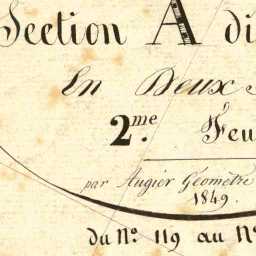 Section A di
En Deux
2me. Feu
par Augier Géomètre
1849.
du No. 119 au No